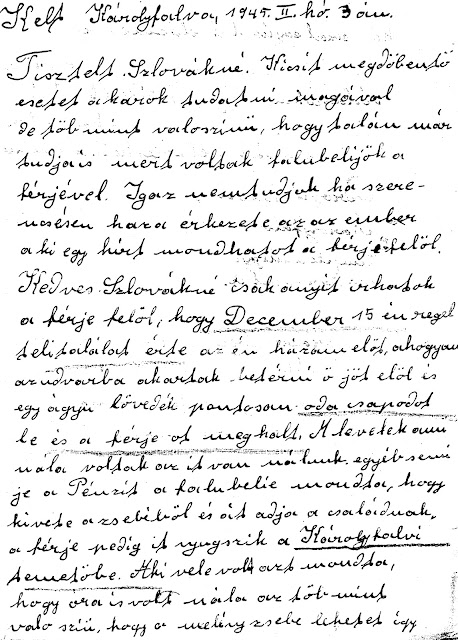 Kelt Károlyfalva, 1945. II. hó. 3 án.
Tisztelt Szlovákné. Kicsit megdöbentö
esetet akarok tudatni magával
de töb mint valoszinü, hogy talán már
tudjais mert voltak falubelijök a
férjével. Igaz nemtudjuk ha szere-
ncsésen haza érkezete az az ember
aki egy hirt mondhatot a férjéröl.
Kedves Szlovákné csak anyit irhatok
a férje felöl, hogy December 15 én regel
telitalálat érte az én házam elöt, ahogyan
azudvarba akartak betérni ö jöt elöl és
egy ágyu lövedék pontosan oda csapodot
le és a férje ot meghalt. A levelek ami
nála voltak az it van nálunk egyéb semi
je a Pénzit a falubelie mondta, hogy
kivete azsebéböl és át adja a családnak,
a férje pedig it nyugszik a Károlyfalvi
temetöbe. Aki vele volt azt mondta,
hogy ora is volt nála az töb mint
való szinü, hogy a melény zsebe lehetet igy